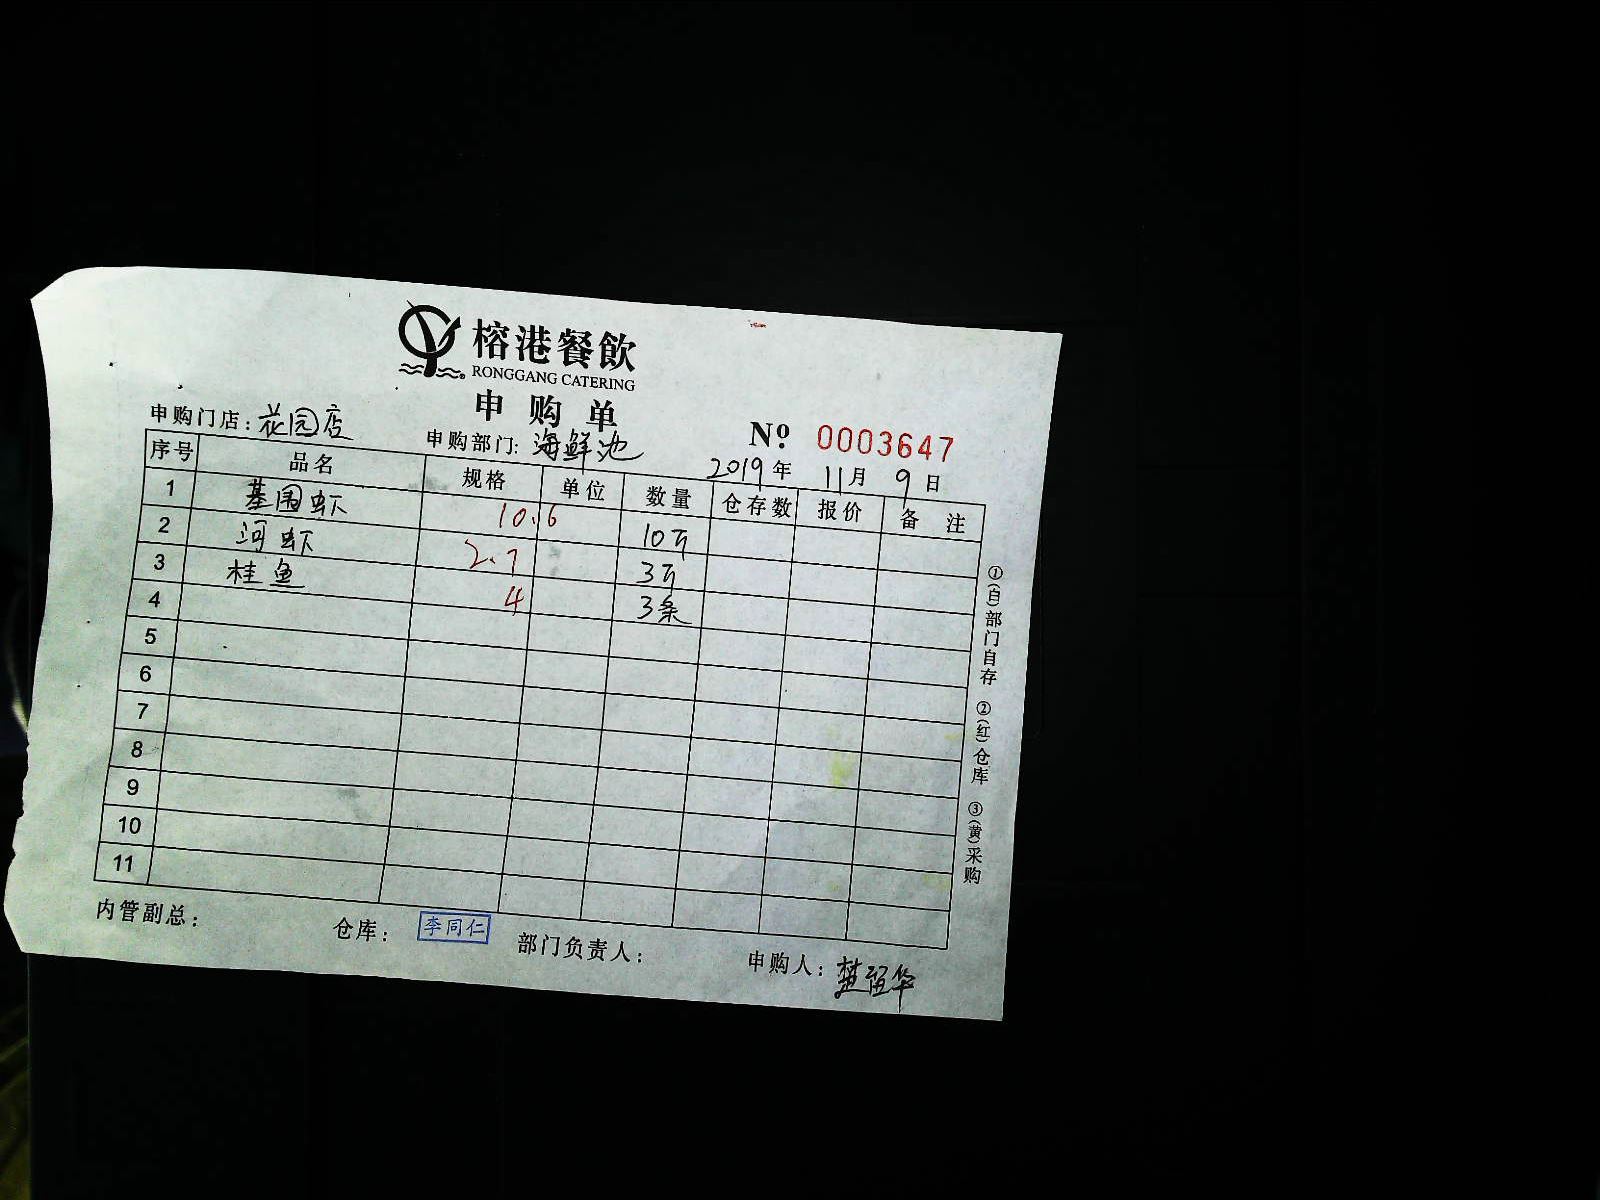 榕港餐飲
RONGGANG CATERING
申购单
申购门店：花园店 申购部门：海鲜池 № 0003647
2019年 11月 9日
序号 品名 规格 单位 数量 仓存数 报价 备注
1 基围虾 10.6 10斤
2 河虾 2.7 3斤
3 桂鱼 4 3条
4
5
6
7
8
9
10
11
①(白)部门自存 ②(红)仓库 ③(黄)采购
内管副总： 仓库：李同仁 部门负责人： 申购人：楚留华